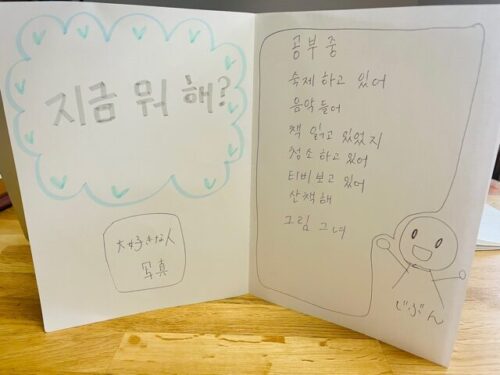 지금 뭐 해?
大好きな人
写真
공부 중
숙제 하고 있어
음악 들어
책 읽고 있었지
청소 하고 있어
티비 보고 있어
산책 해
그림 그녀
じぶん